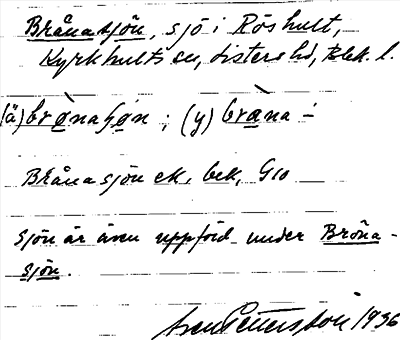 Brånasjön, sjö i Röshult,
Kyrkhults sn, Listers hd, Blek. l.
(ä) brònaʃøn; (y) bràna-
Brånasjön ek. bek, G10
Sjön är även uppförd under Bröna-
sjön.
Pettersson 1936